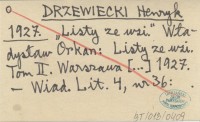 DRZEWIECKI Henryk
1927. „Listy ze wsi." Wła-
dysław Orkan: Listy ze wsi.
Tom II. Warszawa [...] 1927.
- Wiad. Lit. 4, nr 36: